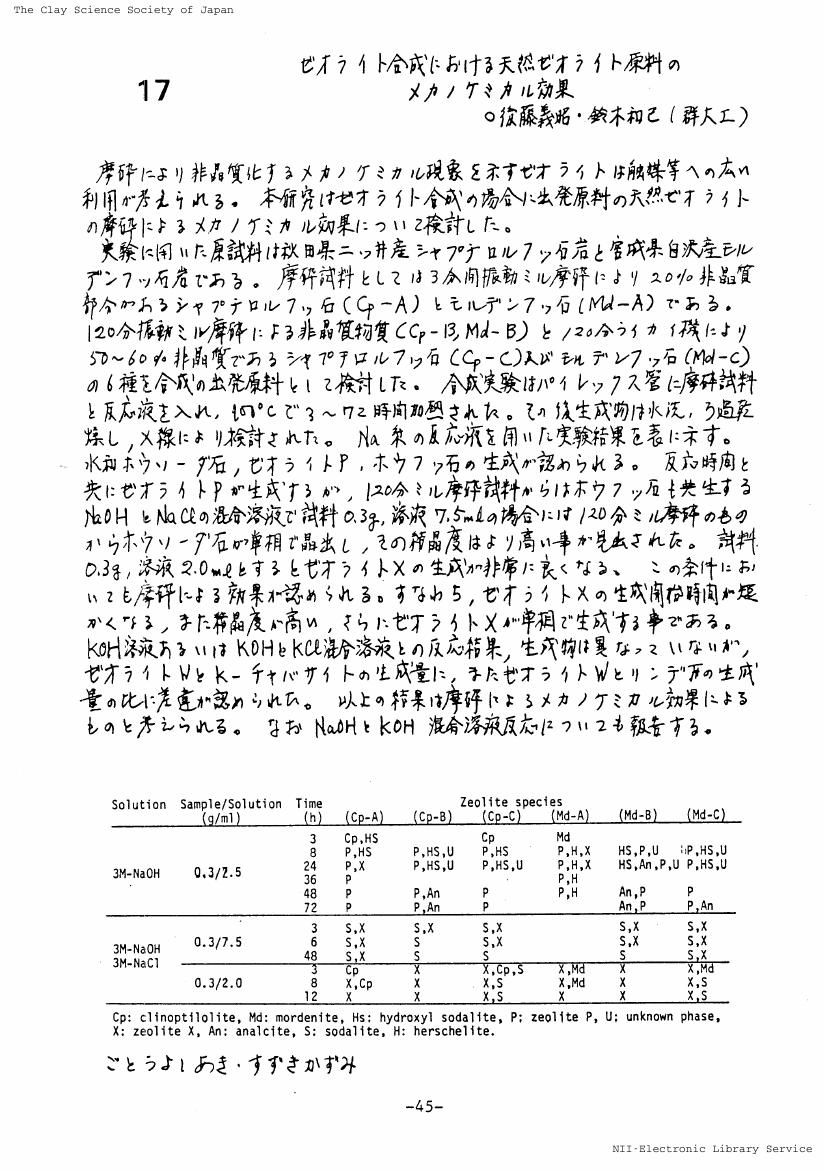 The Clay Science Society of Japan
17
ゼオライト合成における天然ゼオライト原料の
メカノケミカル効果
○後藤義昭・鈴木和己(群大工)
摩砕により非晶質化するメカノケミカル現象を示すゼオライトは触媒等への広い
利用が考えられる。 本研究はゼオライト合成の場合に出発原料の天然ゼオライト
の摩砕によるメカノケミカル効果について検討した。
実験に用いた原試料は秋田県二ッ井産シャプチロルフッ石岩と宮城県白沢産モル
デンフッ石岩である。 摩砕試料としては3分間振動ミル摩砕により20%非晶質
部分があるシャプチロルフッ石(Cp-A)とモルデンフッ石(Md-A)である。
120分振動ミル摩砕による非晶質物質(Cp-B,Md-B)と120分ライカイ機により
50~60%非晶質であるシャプチロルフッ石(Cp-C)及びモルデンフッ石(Md-C)
の6種を合成の出発原料として検討した。 合成実験はパイレックス管に摩砕試料
と反応液を入れ, 100℃で3~72時間加熱された。その後生成物は水洗,ろ過乾
燥し,X線により検討された。 Na系の反応液を用いた実験結果を表に示す。
水和ホウソーダ石,ゼオライトP,ホウフッ石の生成が認められる。 反応時間と
共にゼオライトPが生成するが, 120分ミル摩砕試料からはホウフッ石も共生する
NaOHとNaClの混合溶液で試料0.3g,溶液7.5mlの場合には120分ミル摩砕のもの
からホウソーダ石が単相で晶出し,その結晶度はより高い事が見出された。 試料
0.3g,溶液2.0mlとするとゼオライトXの生成が非常に良くなる、 この条件にお
いても摩砕による効果が認められる。すなわち,ゼオライトXの生成開始時間が短
かくなる,また結晶度が高い,さらにゼオライトXが単相で生成する事である。
KOH溶液あるいはKOHとKCl混合溶液との反応結果,生成物は異なっていないが,
ゼオライトWとK-チャバサイトの生成量に,またゼオライトWとリンデ型の生成
量の比に差違が認められた。 以上の結果は摩砕によるメカノケミカル効果による
ものと考えられる。 なおNaOHとKOH 混合溶液反応についても報告する。
Solution Sample/Solution Time Zeolite species
(g/ml) (h) (Cp-A) (Cp-B) (Cp-C) (Md-A) (Md-B) (Md-C)
3 Cp,HS Cp Md
8 P,HS P,HS,U P,HS P,H,X HS,P,U P,HS,U
3M-NaOH 0.3/2.5 24 P,X P,HS,U P,HS,U P,H,X HS,An,P,U P,HS,U
36 P P,H
48 P P,An P P,H An,P P
72 P P,An P An,P P,An
3 S,X S,X S,X S,X S,X
3M-NaOH 0.3/7.5 6 S,X S S,X S,X S,X
3M-NaCl 48 S,X S S S S,X
3 Cp X X,Cp,S X,Md X X,Md
0.3/2.0 8 X,Cp X X,S X,Md X X,S
12 X X X,S X X X,S
Cp: clinoptilolite, Md: mordenite, Hs: hydroxyl sodalite, P; zeolite P, U; unknown phase,
X: zeolite X, An: analcite, S: sodalite, H: herschelite.
ごとうよしあき・すずきかずみ
-45-
NII-Electronic Library Service